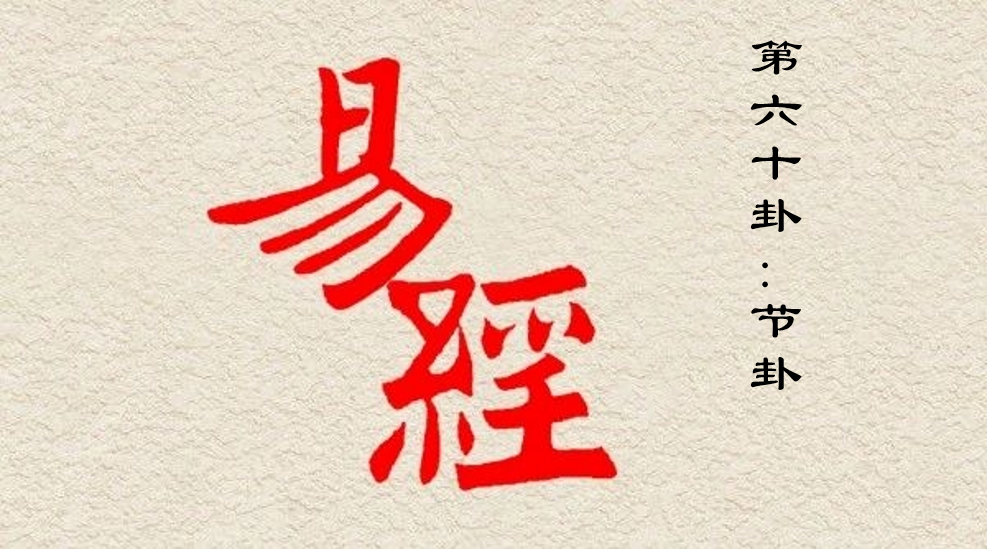 易經
第六十卦:节卦